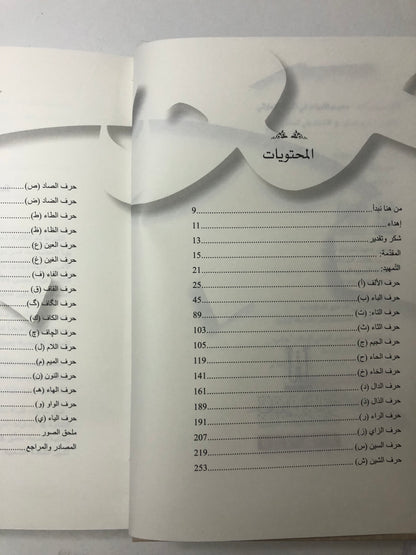 المحتويات
من هنا نبدأ.................9
إهداء.................11
شكر وتقدير.................13
المقدّمة:.................15
التّمهيد:.................21
حرف الألف (أ).................25
حرف الباء (ب).................45
حرف التاء: (ت).................89
حرف الثاء (ث).................103
حرف الجيم (ج).................105
حرف الحاء (ح).................119
حرف الخاء (خ).................141
حرف الدال (د).................161
حرف الذال (ذ).................189
حرف الراء (ر).................191
حرف الزاي (ز).................207
حرف السين (س).................219
حرف الشين (ش).................253
حرف الصاد (ص).................
حرف الضاد (ض).................
حرف الطاء (ط).................
حرف الظاء (ظ).................
حرف العين (ع).................
حرف الغين (غ).................
حرف الفاء (ف).................
حرف القاف (ق).................
حرف الكاف (گ).................
حرف الكاف (ك).................
حرف الچاف (چ).................
حرف اللام (ل).................
حرف الميم (م).................
حرف النون (ن).................
حرف الهاء (هـ).................
حرف الواو (و).................
حرف الياء (ي).................
ملحق الصور.................
المصادر والمراجع.................